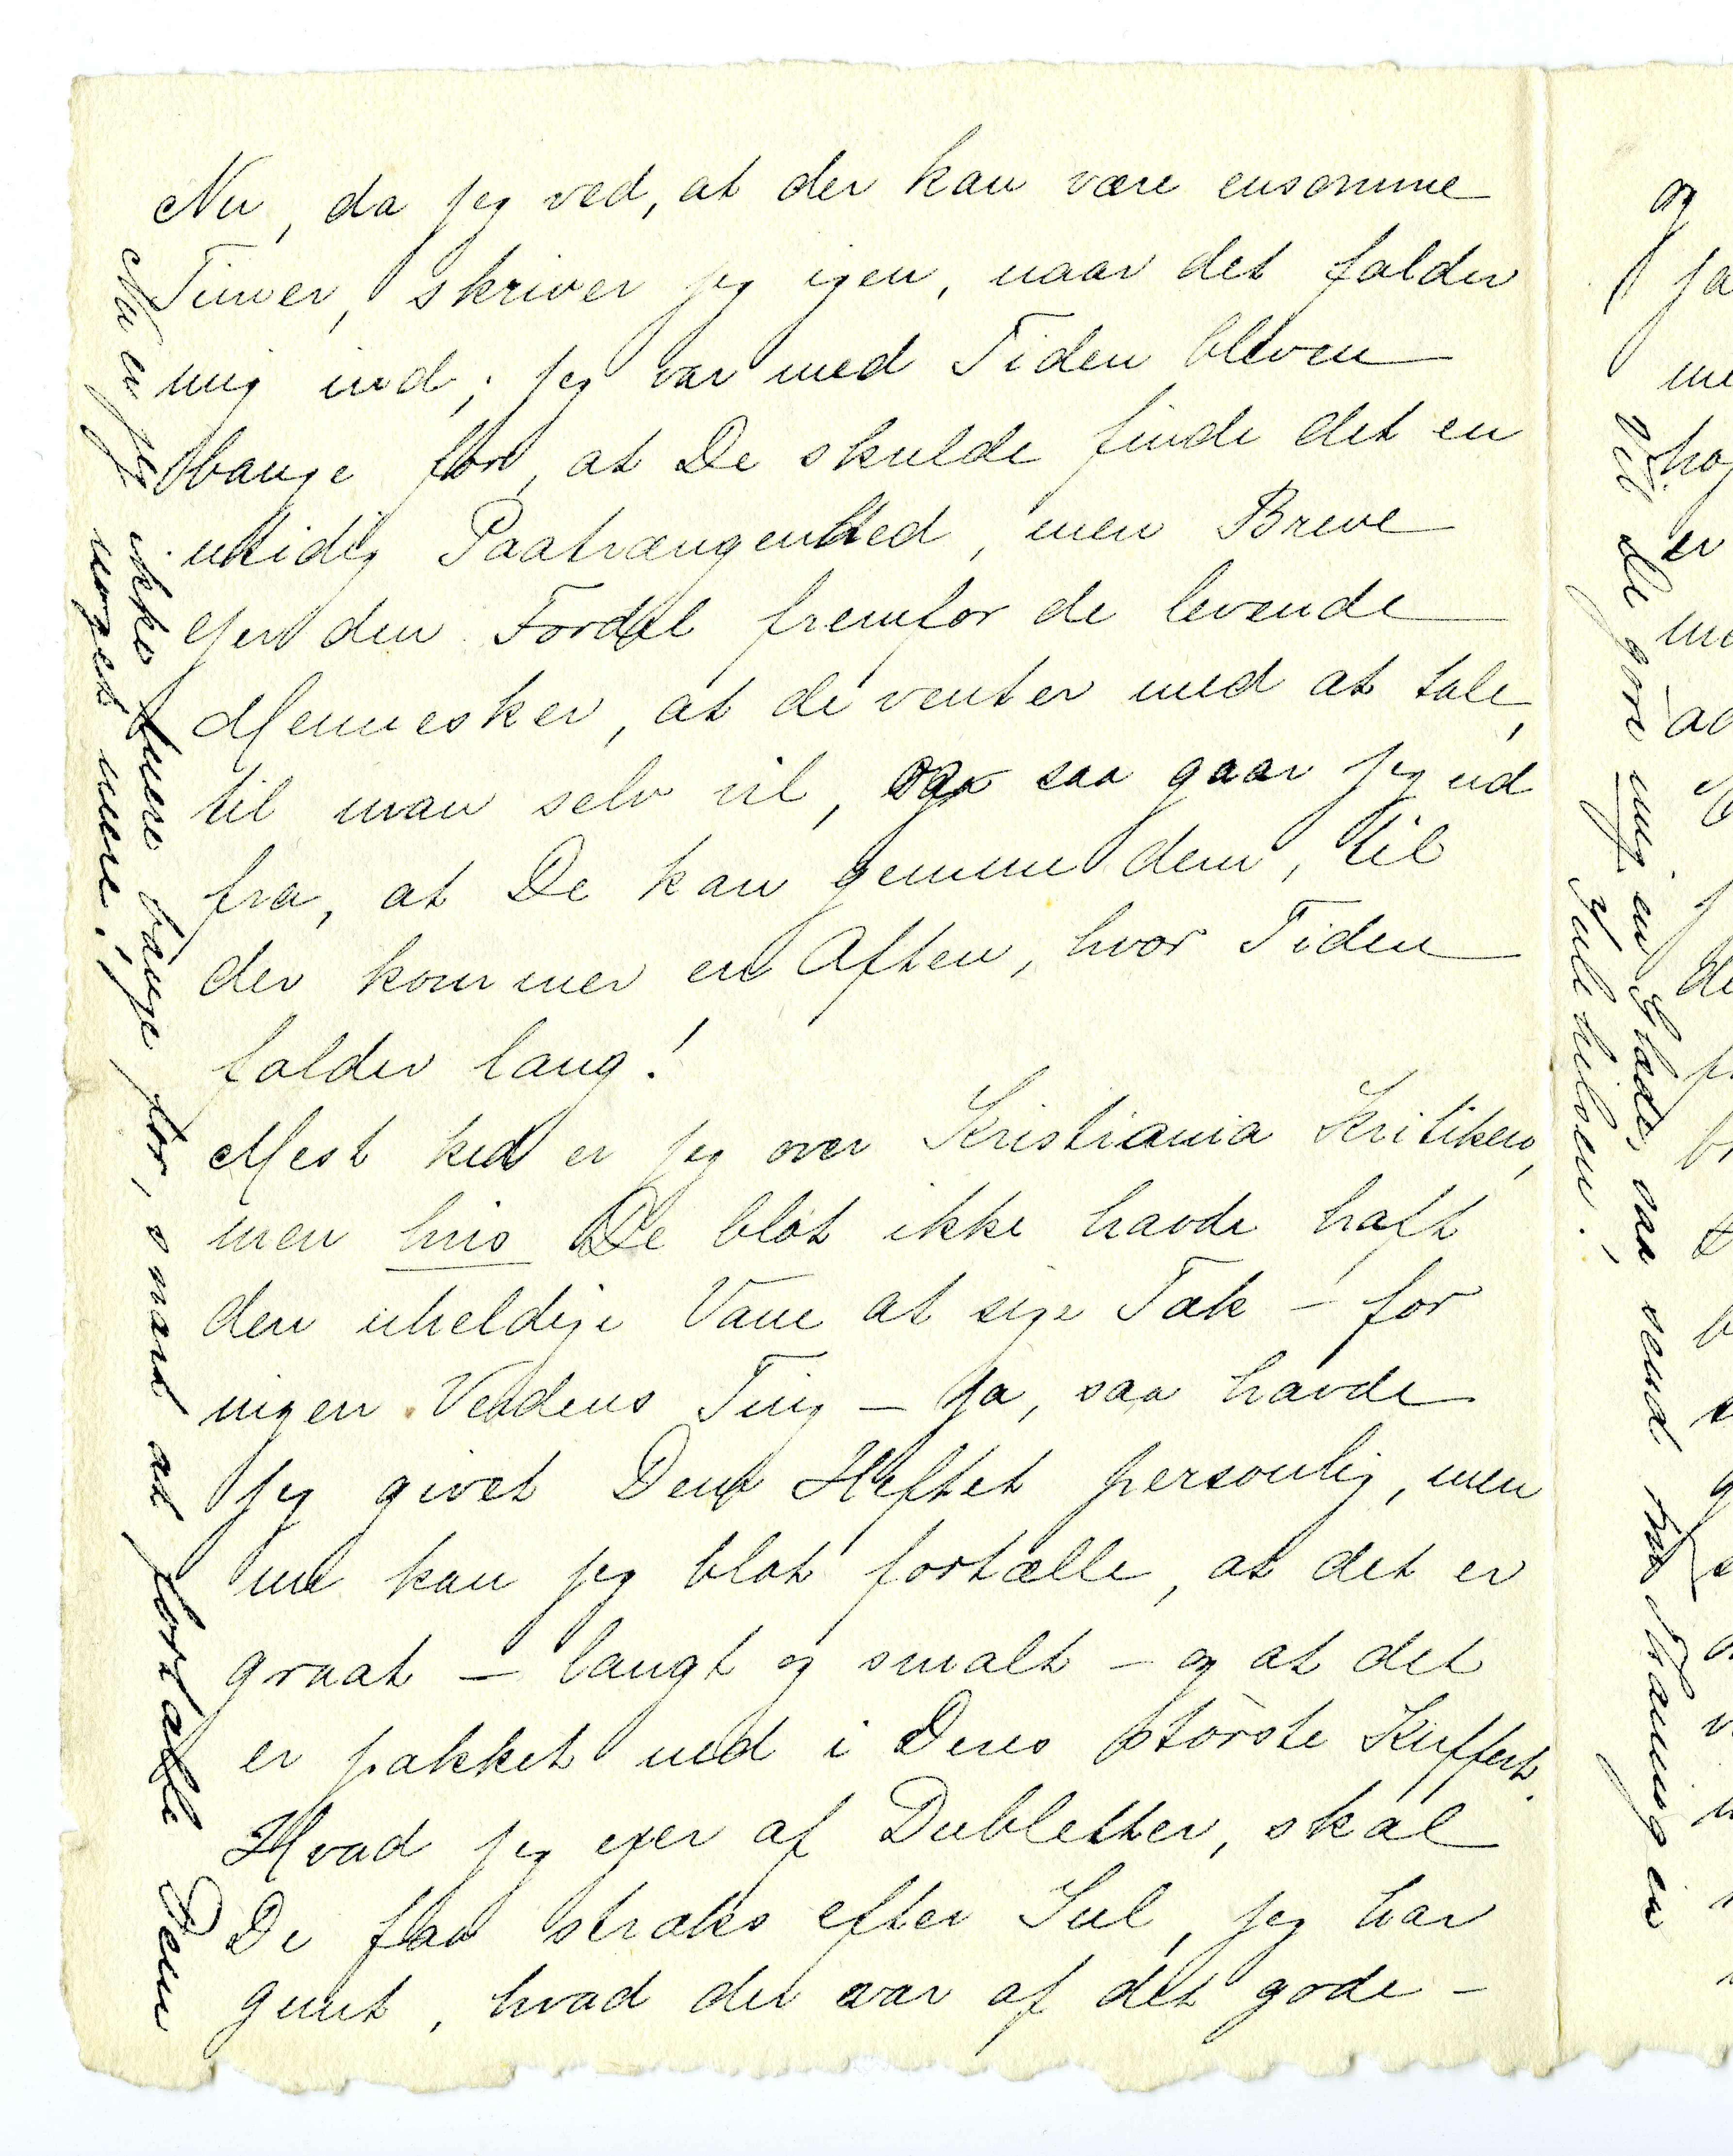 Nu, da jeg ved, at der kan være ensomme
Timer, skriver jeg igen, naar det falder
mig ind; jeg var med Tiden bleven
bange for, at De skulde finde det en
utidig Paatrængenhed, men Breve
ejer den Fordel fremfor de levende
Mennesker, at de venter med at tale,
til man selv vil, og saa gaar jeg ud
fra, at De kan gemme dem, til
der kommer en Aften, hvor Tiden
falder lang!
Mest ked er jeg over Kristiania Kritiken,
men hvis De blot ikke havde haft
den uheldige Vane at sige Tak – for
ingen Verdens Ting – ja, saa havde
jeg givet Dem Heftet personlig, men
nu kan jeg blot fortælle, at det er
graat – langt og smalt – og at det
er pakket ned i Deres største Kuffert.
Hvad jeg ejer af Dubletter, skal
De faa straks efter Jul, jeg har
gemt, hvad der var af det gode –
Nu er jeg ikke mere bange for, snart at fortælle Dem
noget mere!
Vil De gøre mig en Glæde, saa send
en
Julehilsen!
og
ja
er